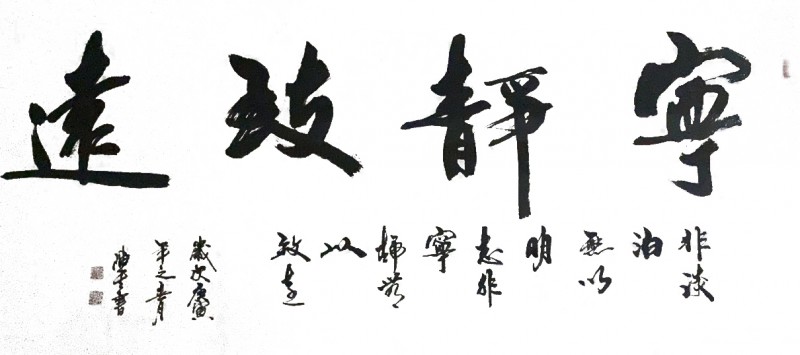 寧靜致遠
非淡
泊
無以
明
志非
寧
靜無
以
致遠
歲次庚寅
年之春月